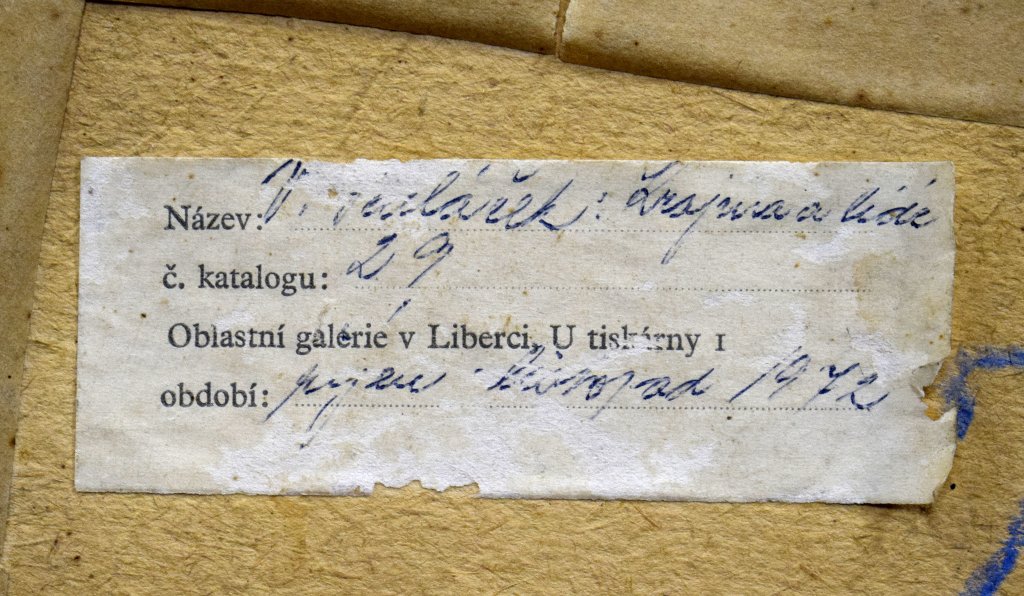 Název: V. : Krajina a lidé
č. katalogu: 29
Oblastní galérie v Liberci, U tiskárny 1
období: říjen - listopad 1972